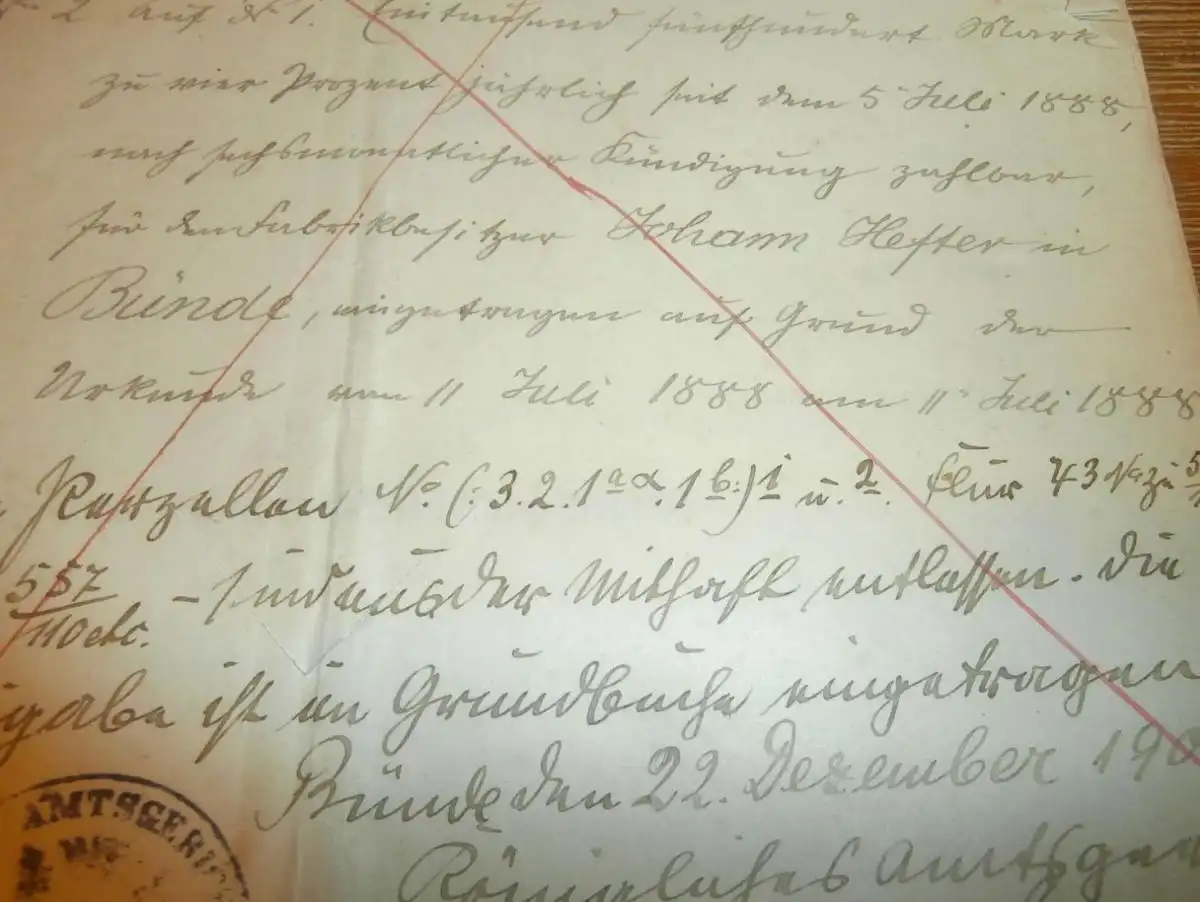 2 auf № 1. Eintausend fünfhundert Mark
zu vier Prozent jährlich seit dem 5 Juli 1888,
nach sechsmonatlicher Kündigung zahlbar,
für den Fabrikbesitzer Johann Hefter in
Bünde, eingetragen auf Grund der
Urkunde vom 11 Juli 1888 am 11 Juli 1888
Parzellen No. (:3.2.1a α. 1b:) i u. 2. Flur 43 No zu 5
557/110 etc. - sind aus der Mithaft entlassen. Die
gabe ist im Grundbuche eingetragen
Bünde, den 22. Dezember 190
Königliches Amtsger
AMTSGERI